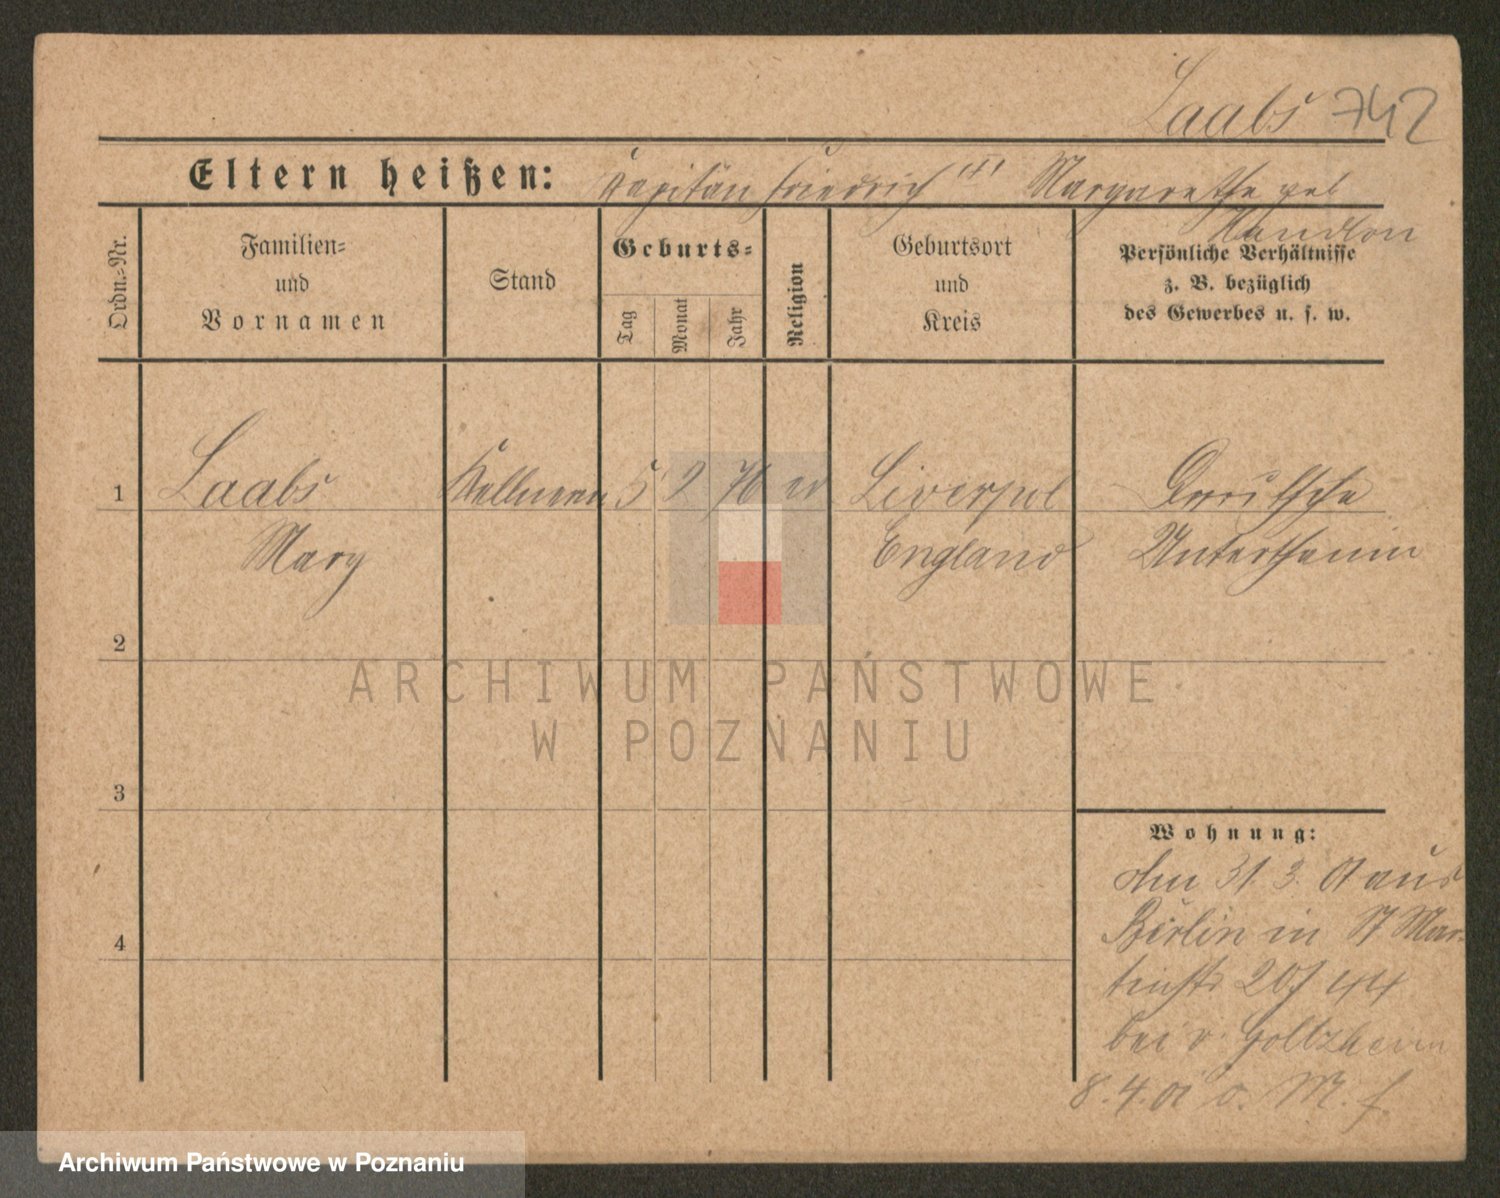 Laabs 742
Eltern heißen: Kapitän Friedrich Margarethe geb
Ordn.-Nr.
Familien-
und
Vornamen
Stand
Geburts-
Tag
Monat
Jahr
Religion
Geburtsort
und
Kreis
Persönliche Verhältnisse
z. B. bezüglich
des Gewerbes u. s. w.
1 Laabs 5 9 76 ev Liverpol Deutsche
Mary England Unterthanin
2
ARCHIWUM PAŃSTWOWE
W POZNANIU
3
Wohnung:
31. 3. 01 aus
4 Berlin in St Mar-
tinstr 44
bei v. Goltzheim
8. 4. 01
Archiwum Państwowe w Poznaniu